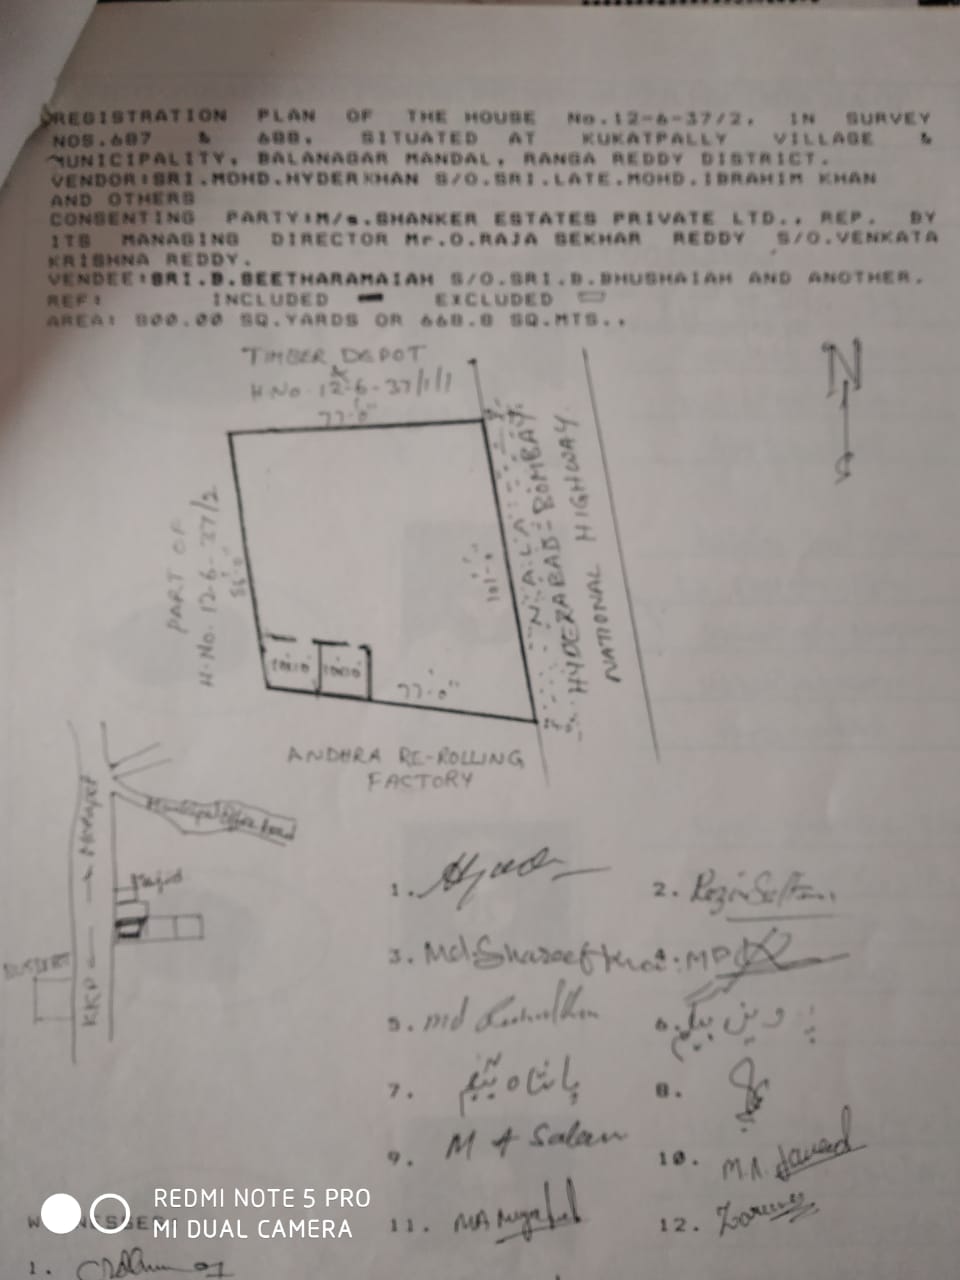 REGISTRATION PLAN OF THE HOUSE No.12-6-37/2, IN SURVEY
NOS.687 & 688, SITUATED AT KUKATPALLY VILLAGE &
MUNICIPALITY, BALANAGAR MANDAL, RANGA REDDY DISTRICT.
VENDOR:SRI.MOHD.HYDER KHAN S/O.SRI.LATE.MOHD.IBRAHIM KHAN
AND OTHERS
CONSENTING PARTY:M/s.SHANKER ESTATES PRIVATE LTD., REP. BY
ITS MANAGING DIRECTOR Mr.O.RAJA SEKHAR REDDY S/O.VENKATA
KRISHNA REDDY.
VENDEE:SRI.B.SEETHARAMAIAH S/O.SRI.B.BHUSHAIAH AND ANOTHER.
REF: INCLUDED EXCLUDED
AREA: 800.00 SQ.YARDS OR 668.8 SQ.MTS..
TIMBER DEPOT
H.No. 12-6-37/1/1
77-0"
N
PART OF
H.No. 12-6-37/2
101-0
NALA
HYDERABAD-BOMBAY
NATIONAL HIGHWAY
10x10 10x10
77-0"
ANDHRA RE-ROLLING
FACTORY
Municipal Office Road
KKP
1.
2.
3. Md. Shareef Khan 4. MD
5. md
6. پروین بیگم
7.
8.
9. M A Salam
10. M.A. Javeed
11. MA
12.
WITNESSES
1.
REDMI NOTE 5 PRO
MI DUAL CAMERA